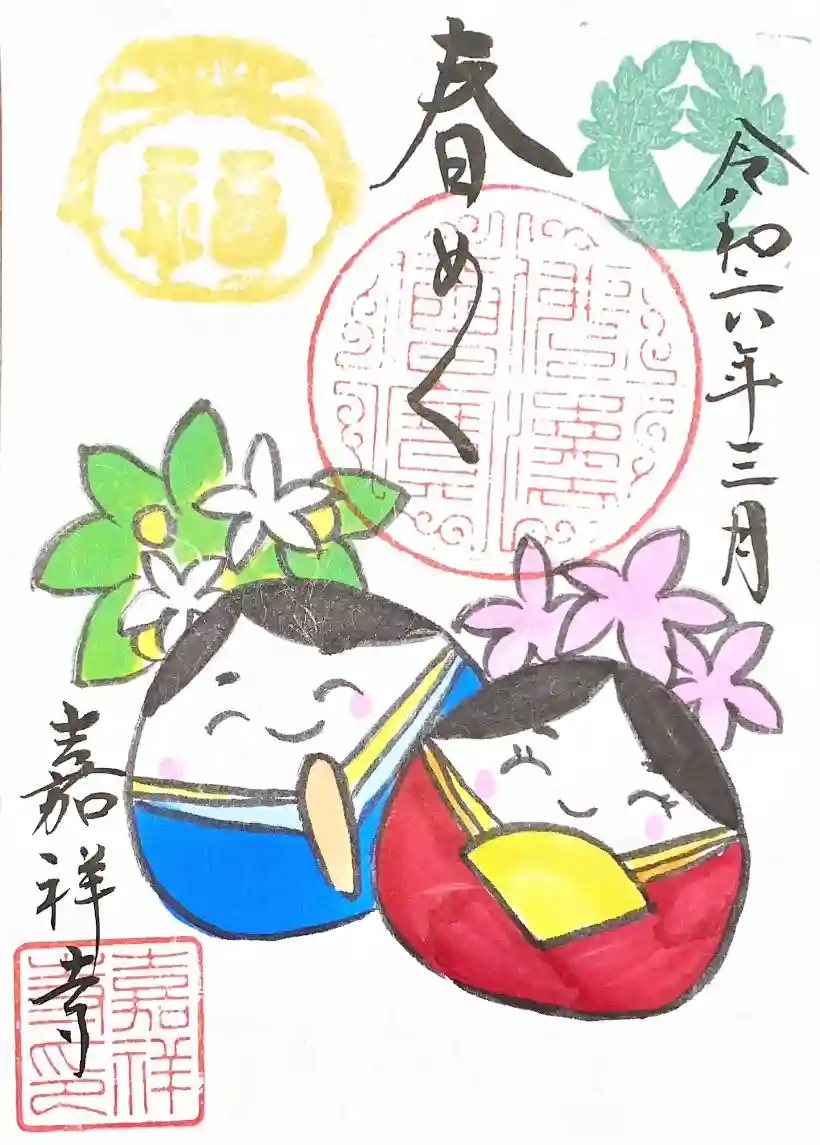 令和六年三月
春めく
福
嘉祥寺
嘉祥
寺印